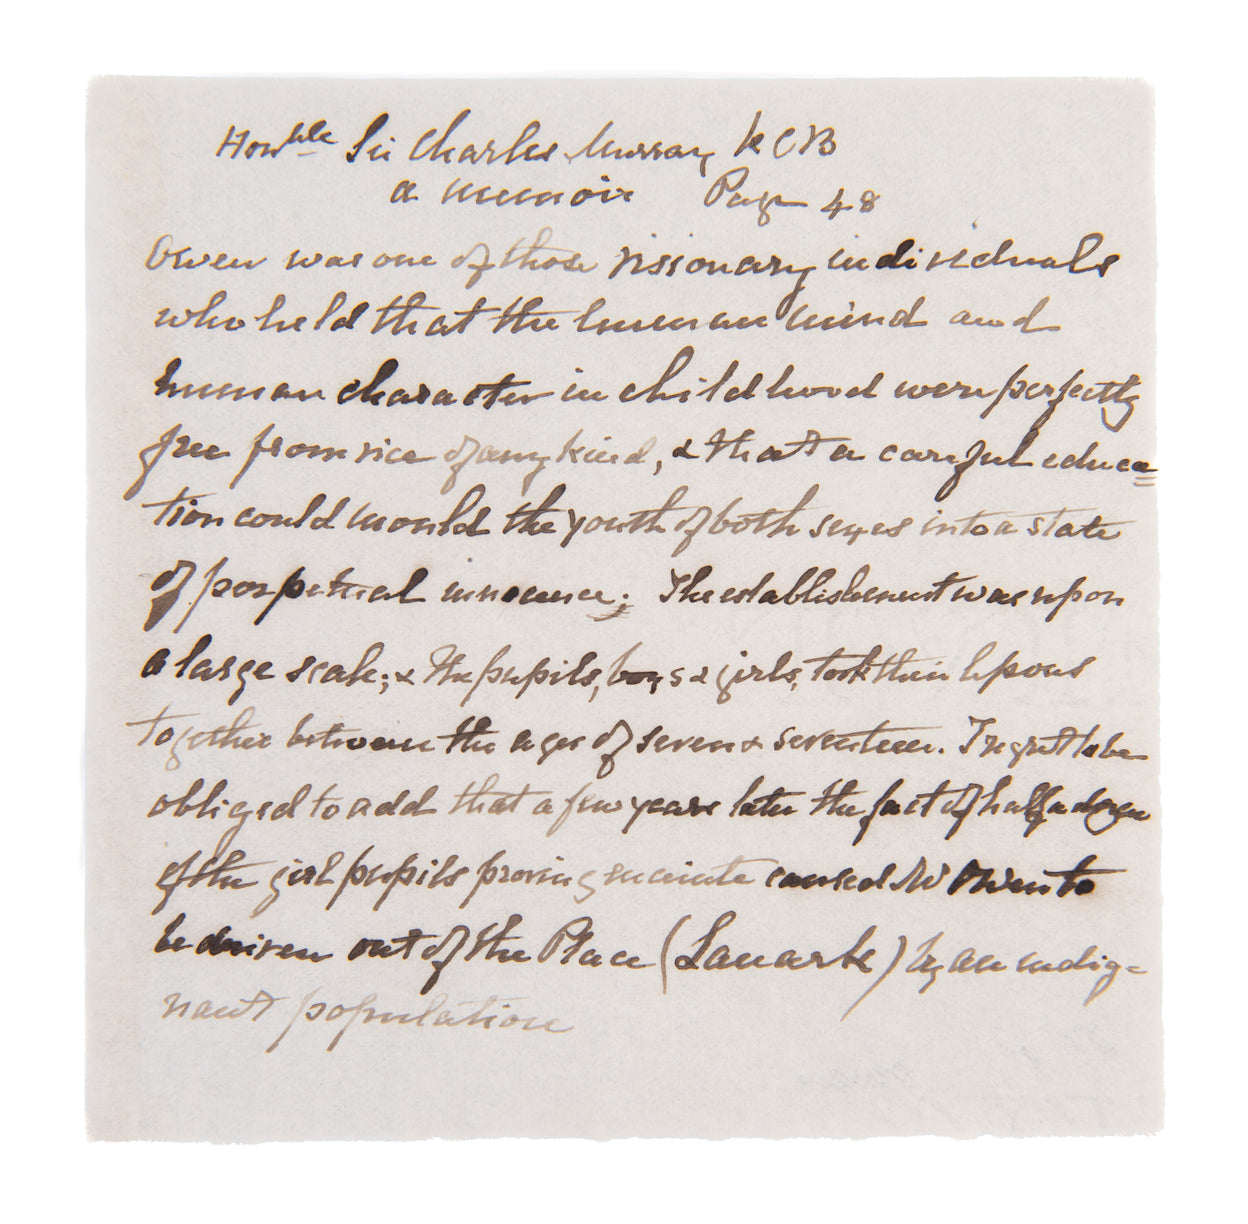 Honble Sir Charles Murray KCB
a memoir Page 48
Owen was one of those visionary individuals
who held that the human mind and
human character in childhood were perfectly
free from vice of any kind, & that a careful educa=
tion could mould the youth of both sexes into a state
of perpetual innocence. The establishment was upon
a large scale; & the pupils, boys & girls, took their lessons
together between the ages of seven & seventeen. I regret to be
obliged to add that a few years later the fact of half a dozen
of the girl pupils proving enceinte caused Mr Owen to
be driven out of the Place (Lanark) by an indig=
nant population